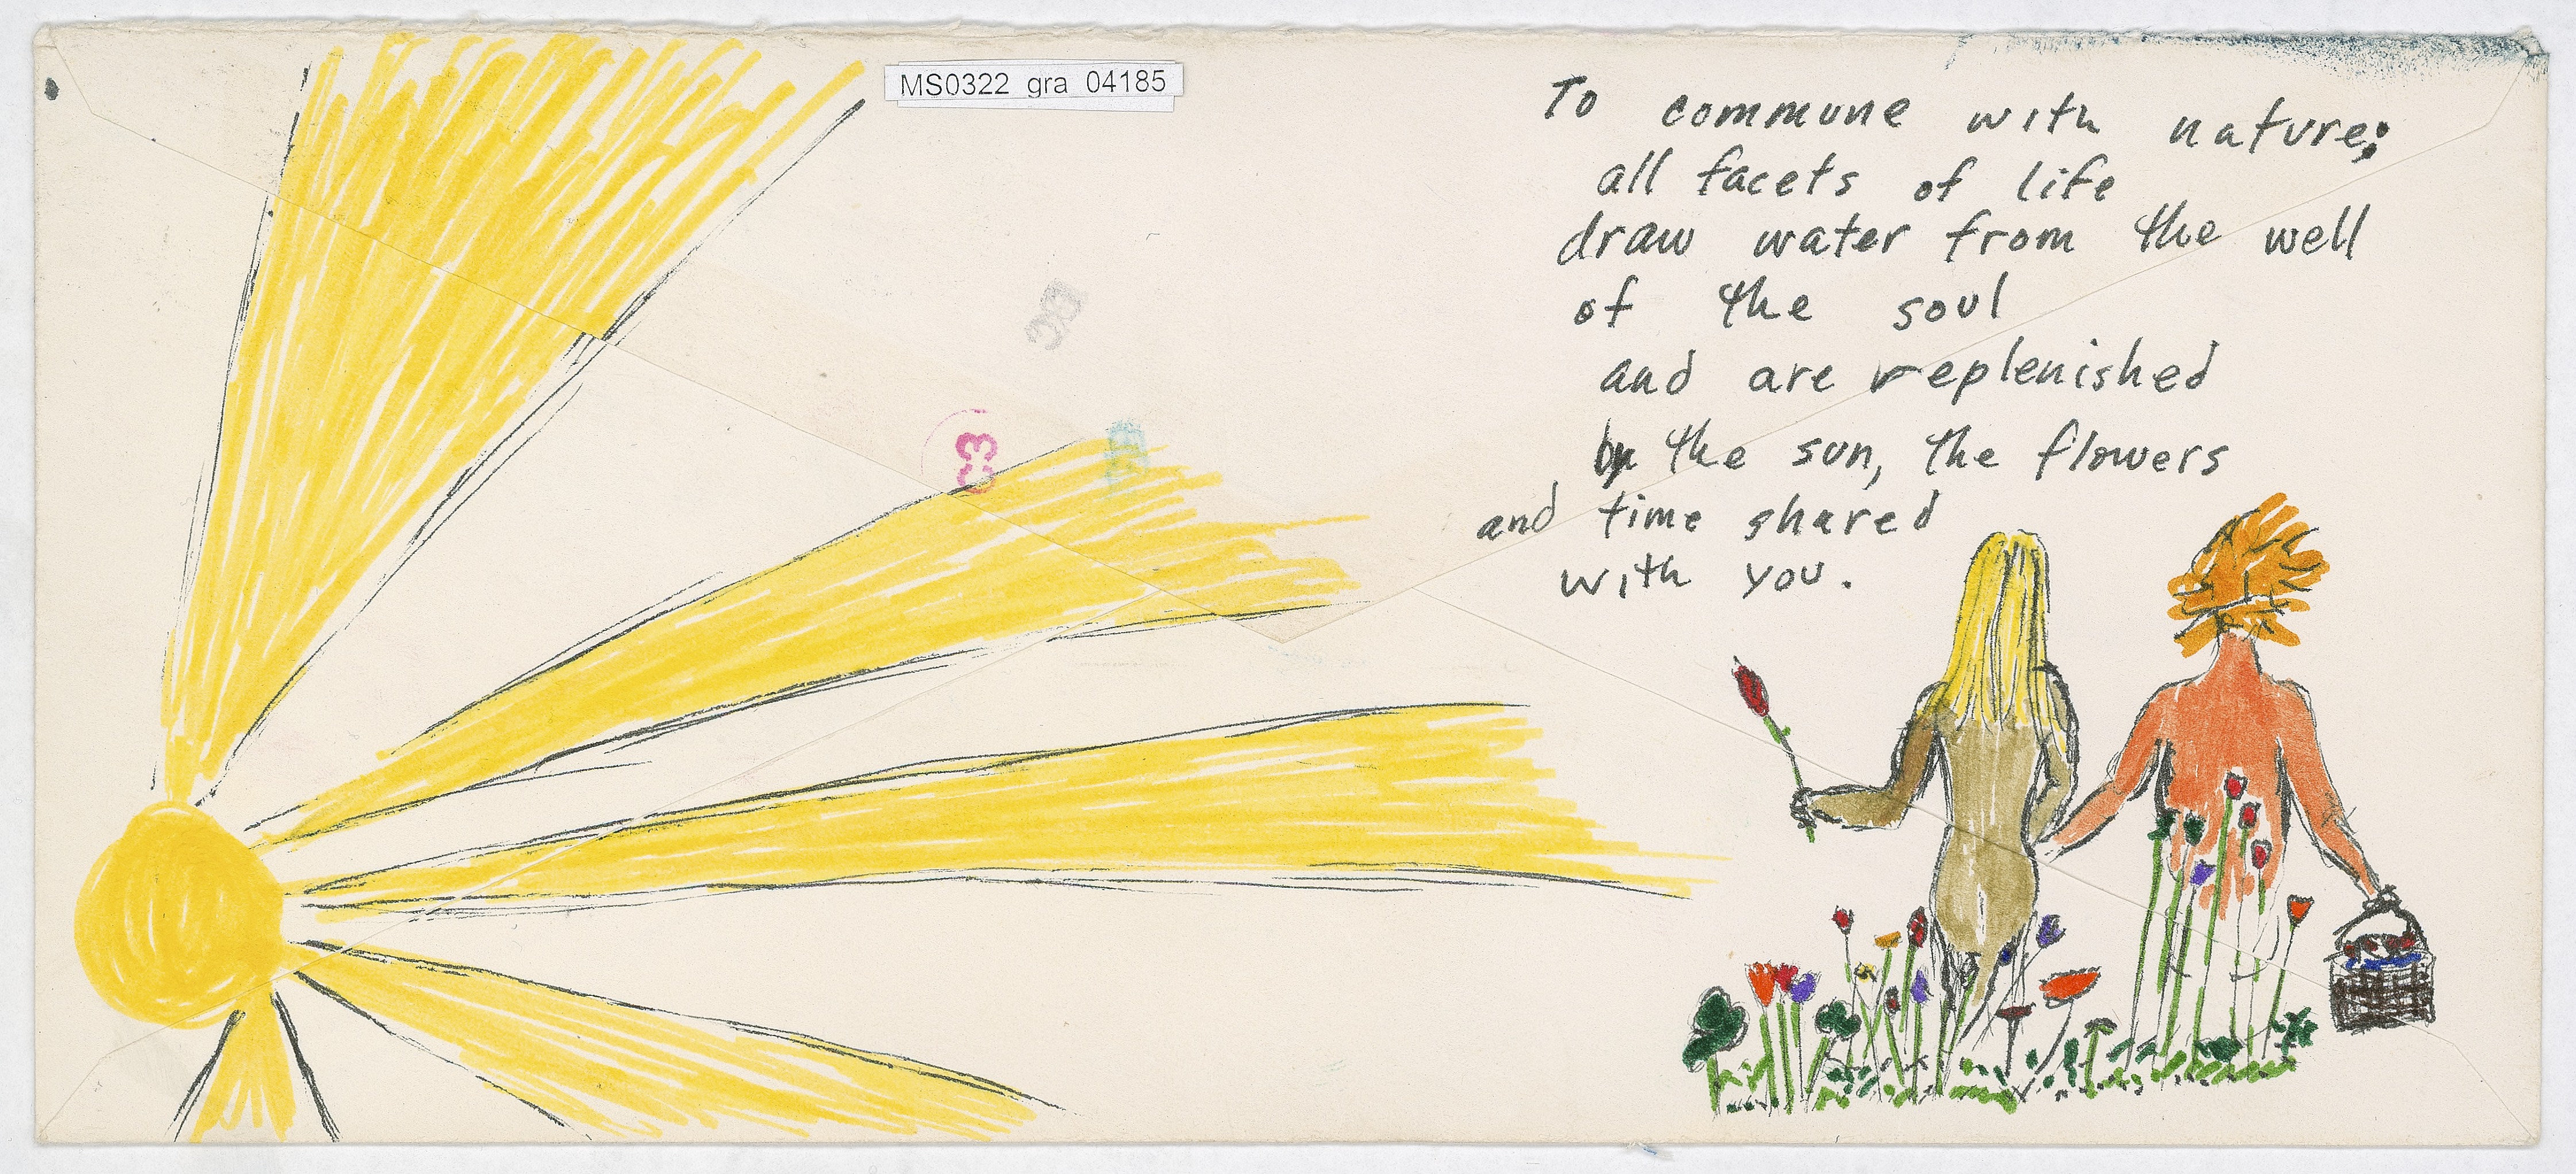 MS0322 gra 04185
To commune with nature;
all facets of life
draw water from the well
of the soul
and are replenished
by the sun, the flowers
and time shared
with you.